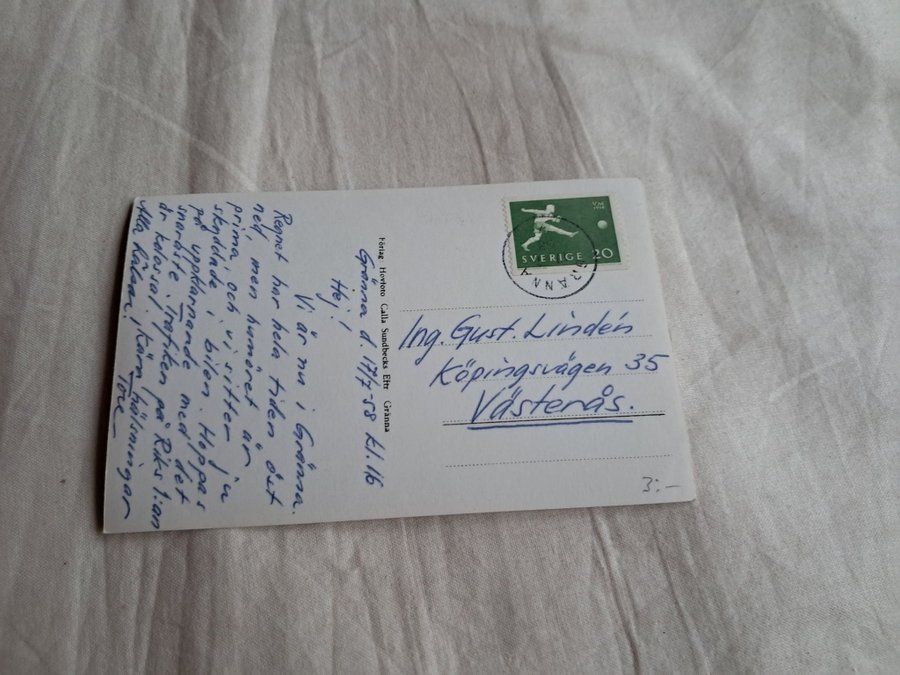 Gränna d. 17/7-58 kl. 16
Hej!
Vi är nu i Gränna.
Regnet har hela tiden öst
ned, men humöret är
prima, och vi sitter ju
skyddade i bilen. Hoppas
på uppklarnande med det
snaraste. Trafiken på Riks 1:an
är kolossal. Käm hälsningar
Alla kalasar! Tore
Förlag Hovfoto Calla Sundbecks Eftr Gränna
VM
1958
SVERIGE 20
GRÄNNA
Ing. Gust. Lindén
Köpingsvägen 35
Västerås.
3:-